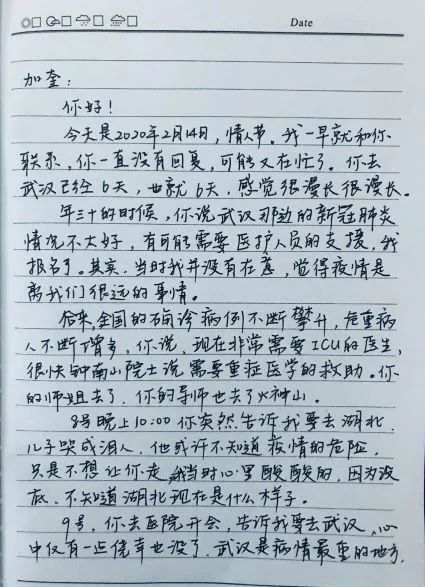 Date
加奎：
你好！
今天是2020年2月14日，情人节。我一早就和你
联系，你一直没有回复，可能又在忙了。你去
武汉已经6天，也就6天，感觉很漫长很漫长。
年三十的时候，你说武汉那边的新冠肺炎
情况不太好，有可能需要医护人员的支援，我
报名了。其实，当时我并没有在意，觉得疫情是
离我们很远的事情。
后来，全国的确诊病例不断攀升，危重病
人不断增多，你说，现在非常需要ICU的医生，
很快钟南山院士说需要重症医学的救助。你
的师姐去了，你的导师也去了火神山。
8号晚上10:00你突然告诉我要去湖北，
儿子哭成泪人，他或许不知道疫情的危险，
只是不想让你走，我当时心里酸酸的，因为没
底，不知道湖北现在是什么样子。
9号，你去医院开会，告诉我要去武汉，心
中仅有一点侥幸也没了，武汉是病情最重的地方，